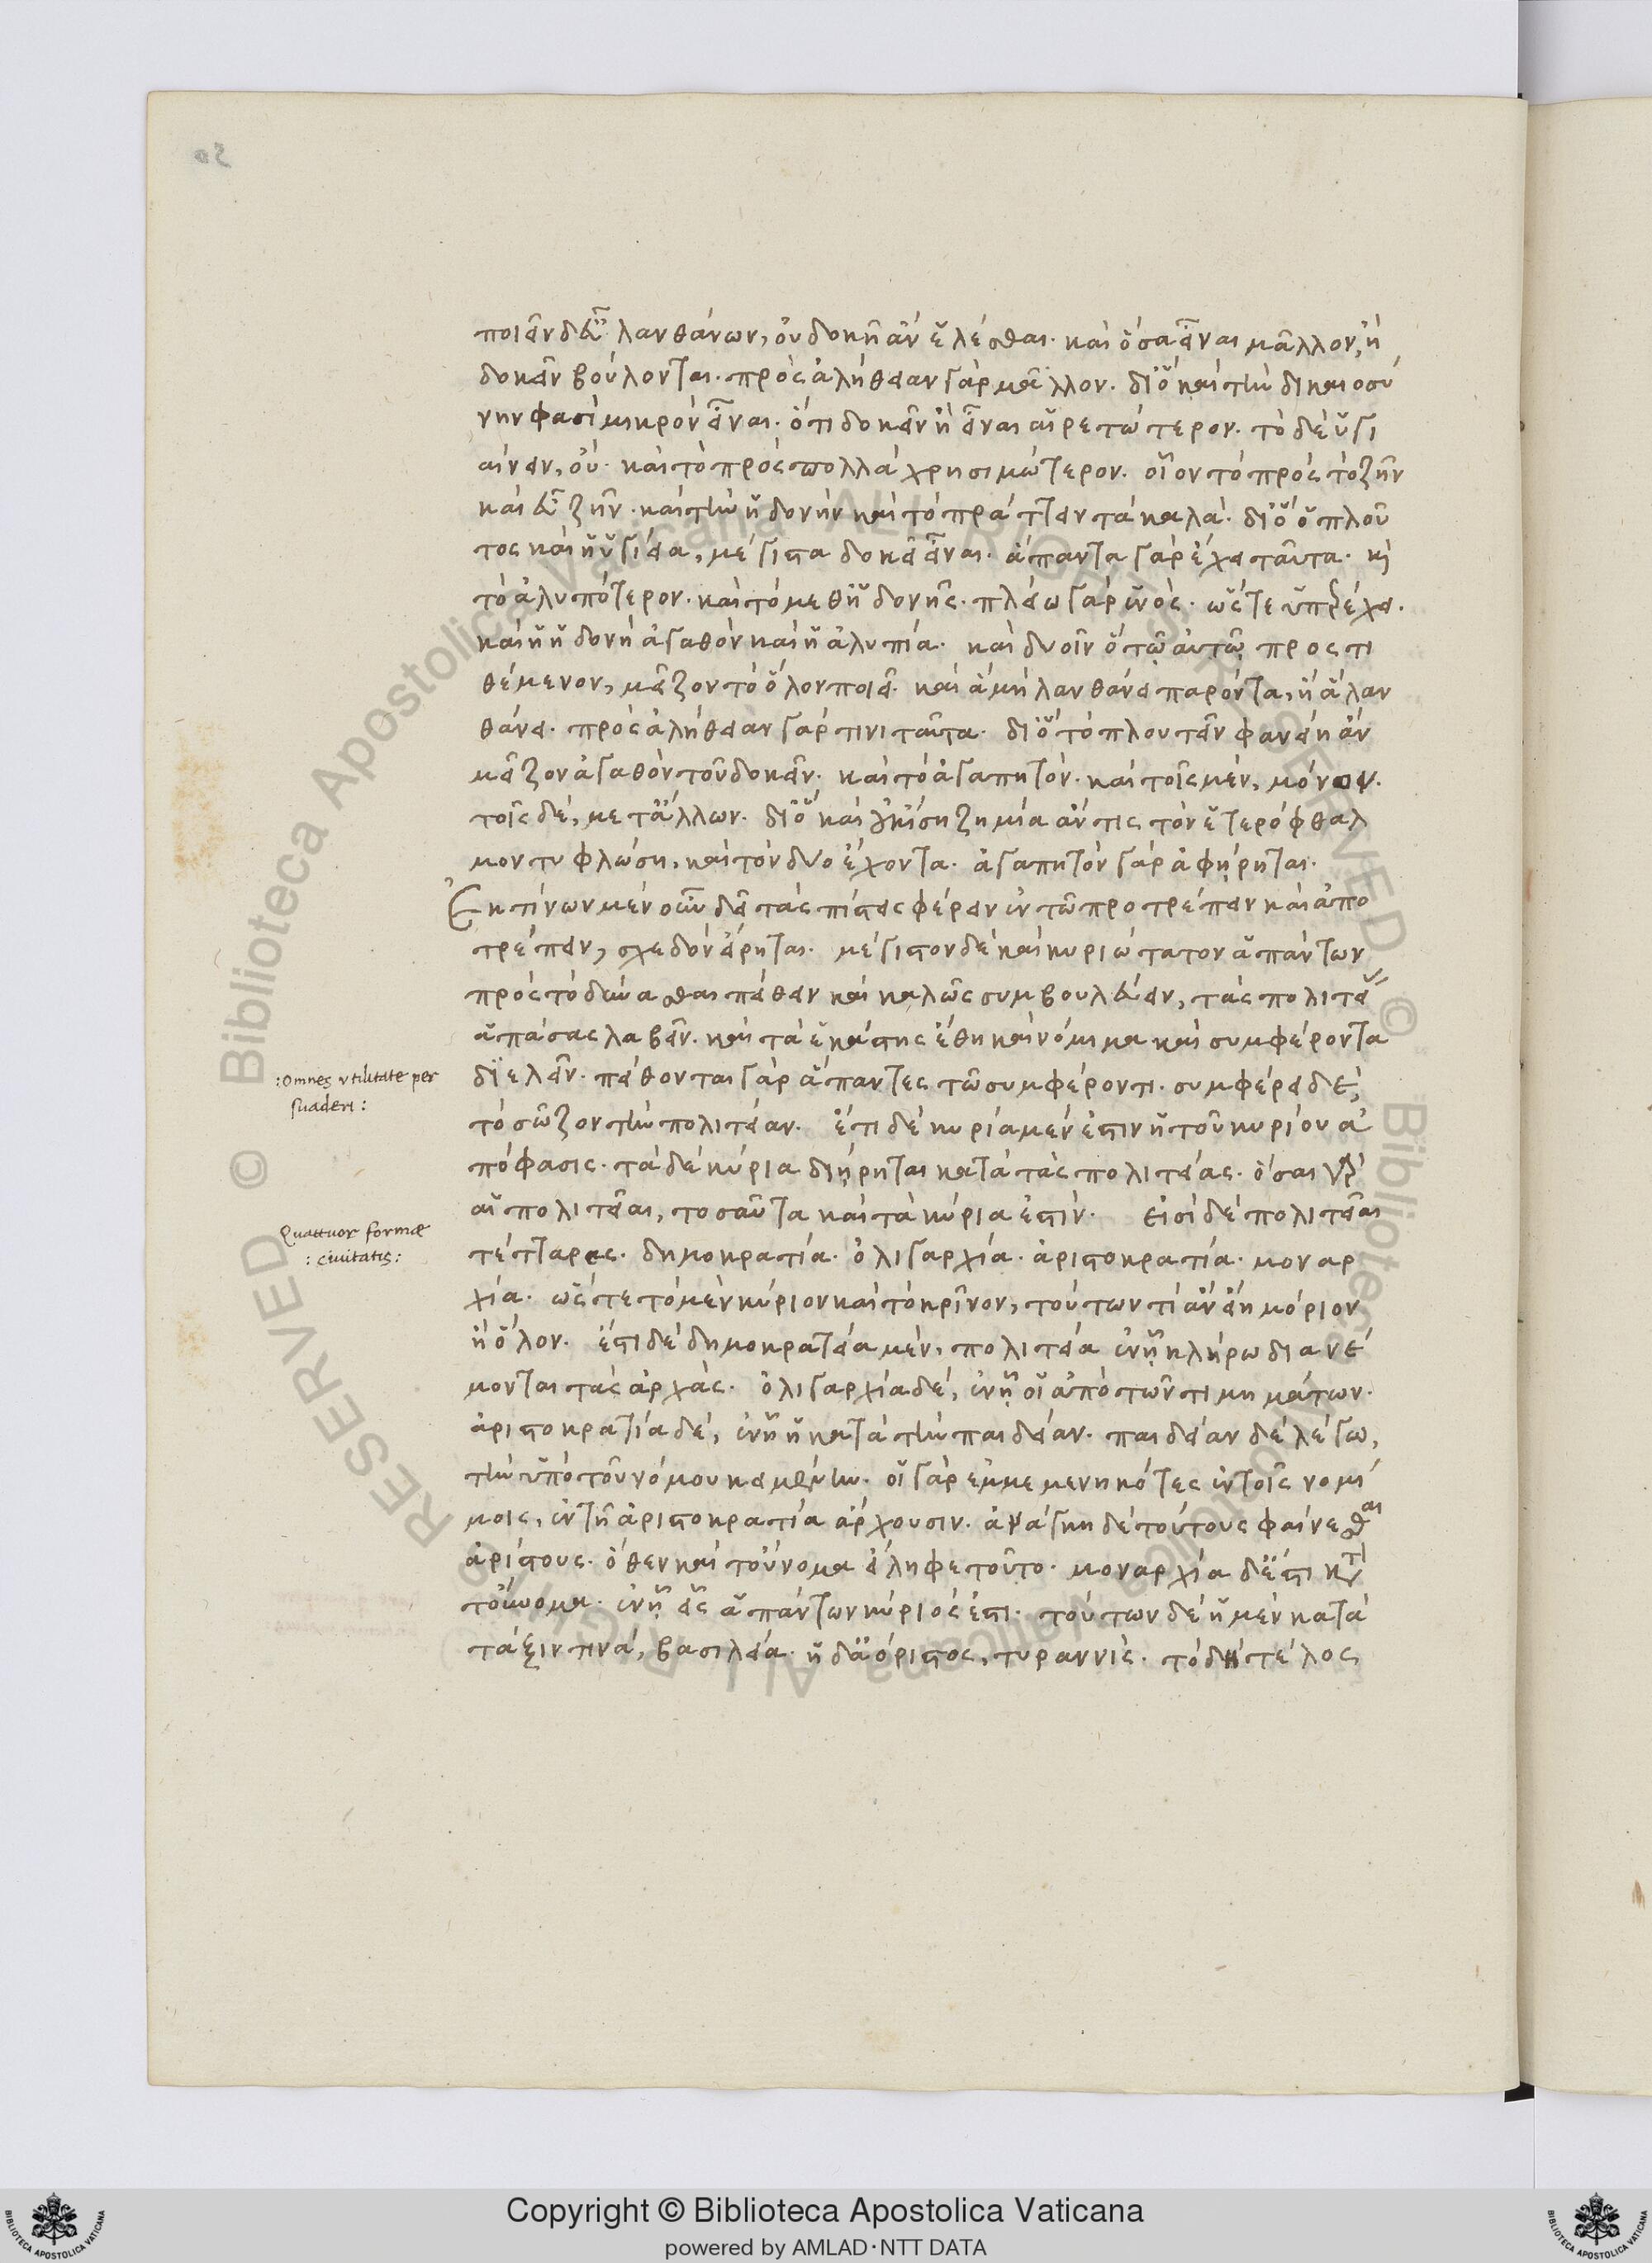 ποιεῖν δ' εὖ λανθάνων, οὐ δοκεῖ ἂν ἑλέσθαι. καὶ ὅσα εἶναι μᾶλλον, ἢ
δοκεῖν βούλονται. πρὸς ἀλήθειαν γὰρ μᾶλλον. διὸ καὶ τὴν δικαιοσύ
νην φασὶ μικρὸν εἶναι. ὅτι δοκεῖν ἢ εἶναι αἱρετώτερον. τὸ δὲ ὑγι
αίνειν, οὔ. καὶ τὸ πρὸς πολλὰ χρησιμώτερον. οἷον τὸ πρὸς τὸ ζῆν
καὶ εὖ ζῆν. καὶ τὴν ἡδονὴν καὶ τὸ πράττειν τὰ καλά. διὸ ὁ πλοῦ
τος καὶ ἡ ὑγίεια, μέγιστα δοκεῖ εἶναι. ἅπαντα γὰρ ἔχει ταῦτα. κỳ
τὸ ἀλυπότερον. καὶ τὸ μεθ' ἡδονῆς. πλείω γὰρ ἑνός. ὥστε ὑπερέχει.
καὶ ἡ ἡδονὴ ἀγαθὸν καὶ ἡ ἀλυπία. καὶ δυοῖν ὃ τῷ αὐτῷ προστι
θέμενον, μεῖζον τὸ ὅλον ποιεῖ. καὶ ἃ μὴ λανθάνει παρόντα, ἢ ἃ λαν
θάνει. πρὸς ἀλήθειαν γὰρ τινὶ ταῦτα. διὸ τὸ πλουτεῖν φανείη ἂν
μεῖζον ἀγαθὸν τοῦ δοκεῖν. καὶ τὸ ἀγαπητόν. καὶ τοῖς μὲν, μόνον.
τοῖς δὲ, μετ' ἄλλων. διὸ καὶ οὐκ ἴση ζημία ἄν τις τὸν ἑτερόφθαλ
μον τυφλώση, καὶ τὸν δύο ἔχοντα. ἀγαπητὸν γὰρ ἀφῄρηται.
Ἐκ τίνων μὲν οὖν δεῖ τὰς πίστεις φέρειν ἐν τῶ προτρέπειν καὶ ἀπο
τρέπειν, σχεδὸν εἴρηται. μέγιστον δὲ καὶ κυριώτατον ἁπάντων
πρὸς τὸ δύνασθαι πείθειν καὶ καλῶς συμβουλεύειν, τὰς πολιτεί
ἁπάσας λαβεῖν. καὶ τὰ ἑκάστης ἔθη καὶ νόμιμα καὶ συμφέροντα
διελεῖν. πείθονται γὰρ ἅπαντες τῶ συμφέροντι. συμφέρει δὲ,
τὸ σῶζον τὴν πολιτείαν. ἔτι δὲ κυρία μὲν ἐστιν ἡ τοῦ κυρίου ἀ
πόφασις. τὰ δὲ κύρια διῄρηται κατὰ τὰς πολιτείας. ὅσαι γὰρ
αἱ πολιτεῖαι, τοσαῦτα καὶ τὰ κύρια ἐστίν. εἰσὶ δὲ πολιτεῖαι
τέτταρες. δημοκρατία. ὀλιγαρχία. ἀριστοκρατία. μοναρ
χία. ὥστε τὸ μὲν κύριον καὶ τὸ κρῖνον, τούτων τί ἂν εἴη μόριον
ἢ ὅλον. ἔστι δὲ δημοκρατεία μὲν, πολιτεία ἐν ᾗ κλήρω διανέ
μονται τὰς ἀρχάς. ὀλιγαρχία δὲ, ἐν ᾗ οἱ ἀπὸ τῶν τιμημάτων.
ἀριστοκρατία δὲ, ἐν ᾗ ἡ κατὰ τὴν παιδείαν. παιδείαν δὲ λέγω,
τὴν ὑπὸ τοῦ νόμου κειμένην. οἱ γὰρ ἐμμεμενηκότες ἐν τοῖς νομί
μοις, ἐν τῆ ἀριστοκρατία ἄρχουσιν. ἀνάγκη δὲ τούτους φαίνεσθαι
ἀρίστους. ὅθεν καὶ τοὔνομα εἴληφε τοῦτο. μοναρχία δ' ἐστὶ κατὰ
τοὔνομα. ἐν ᾗ εἷς ἁπάντων κύριός ἐστι. τούτων δὲ ἡ μὲν κατὰ
τάξιν τινὰ, βασιλεία. ἡ δ' ἀόριστος, τυραννίς. τὸ δὴ τέλος
:Omnes vtilitate per
suaderi:
Quattuor formæ
: ciuitatis:
50
Copyright © Biblioteca Apostolica Vaticana
powered by AMLAD·NTT DATA